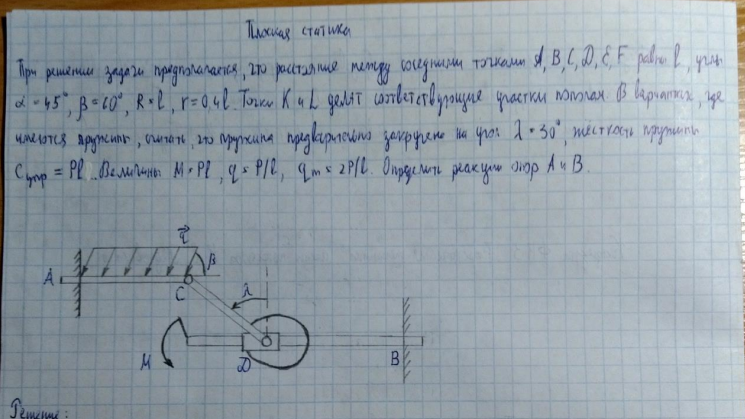 Плоская статика
При решении задачи предполагается, что расстояние между соседними точками A, B, C, D, E, F равны l, углы
α = 45°, β = 60°, R = l, r = 0,4l. Точки K и L делят соответствующие участки пополам. В вариантах, где
имеются пружины, считать, что пружина предварительно закручена на угол λ = 30°, жёсткость пружины
Cупр = Pl. Величины M = Pl, q = P/l, qm = 2P/l. Определить реакции опор A и B.
q
A
β
C
λ
M
D
B
Решение: